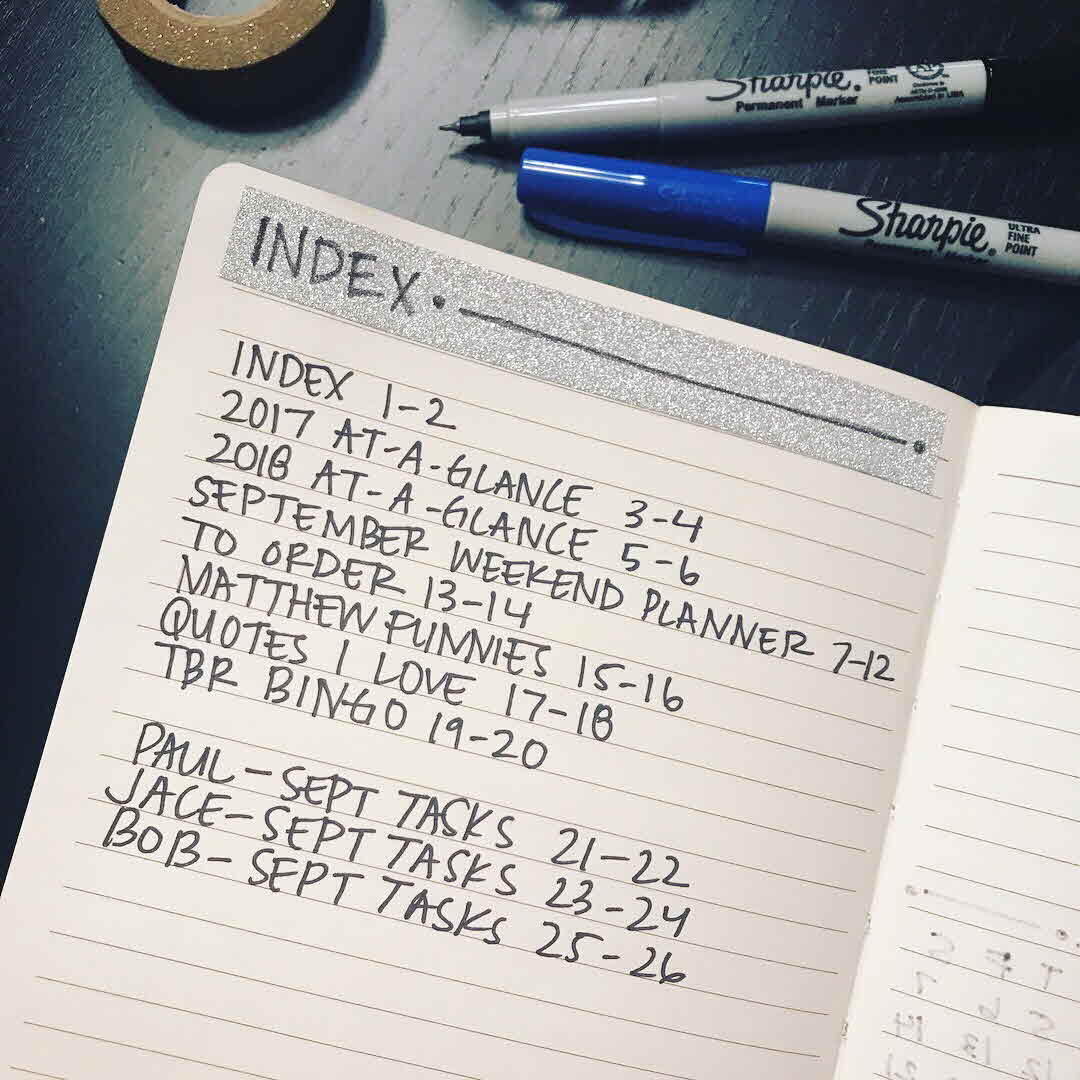 Sharpie.
Permanent Marker
FINE
POINT
Sharpie.
Permanent Marker
ULTRA
FINE
POINT
INDEX.
INDEX 1-2
2017 AT-A-GLANCE 3-4
2018 AT-A-GLANCE 5-6
SEPTEMBER WEEKEND PLANNER 7-12
TO ORDER 13-14
MATTHEW FUNNIES 15-16
QUOTES I LOVE 17-18
TBR BINGO 19-20
PAUL-SEPT TASKS 21-22
JACE-SEPT TASKS 23-24
BOB-SEPT TASKS 25-26